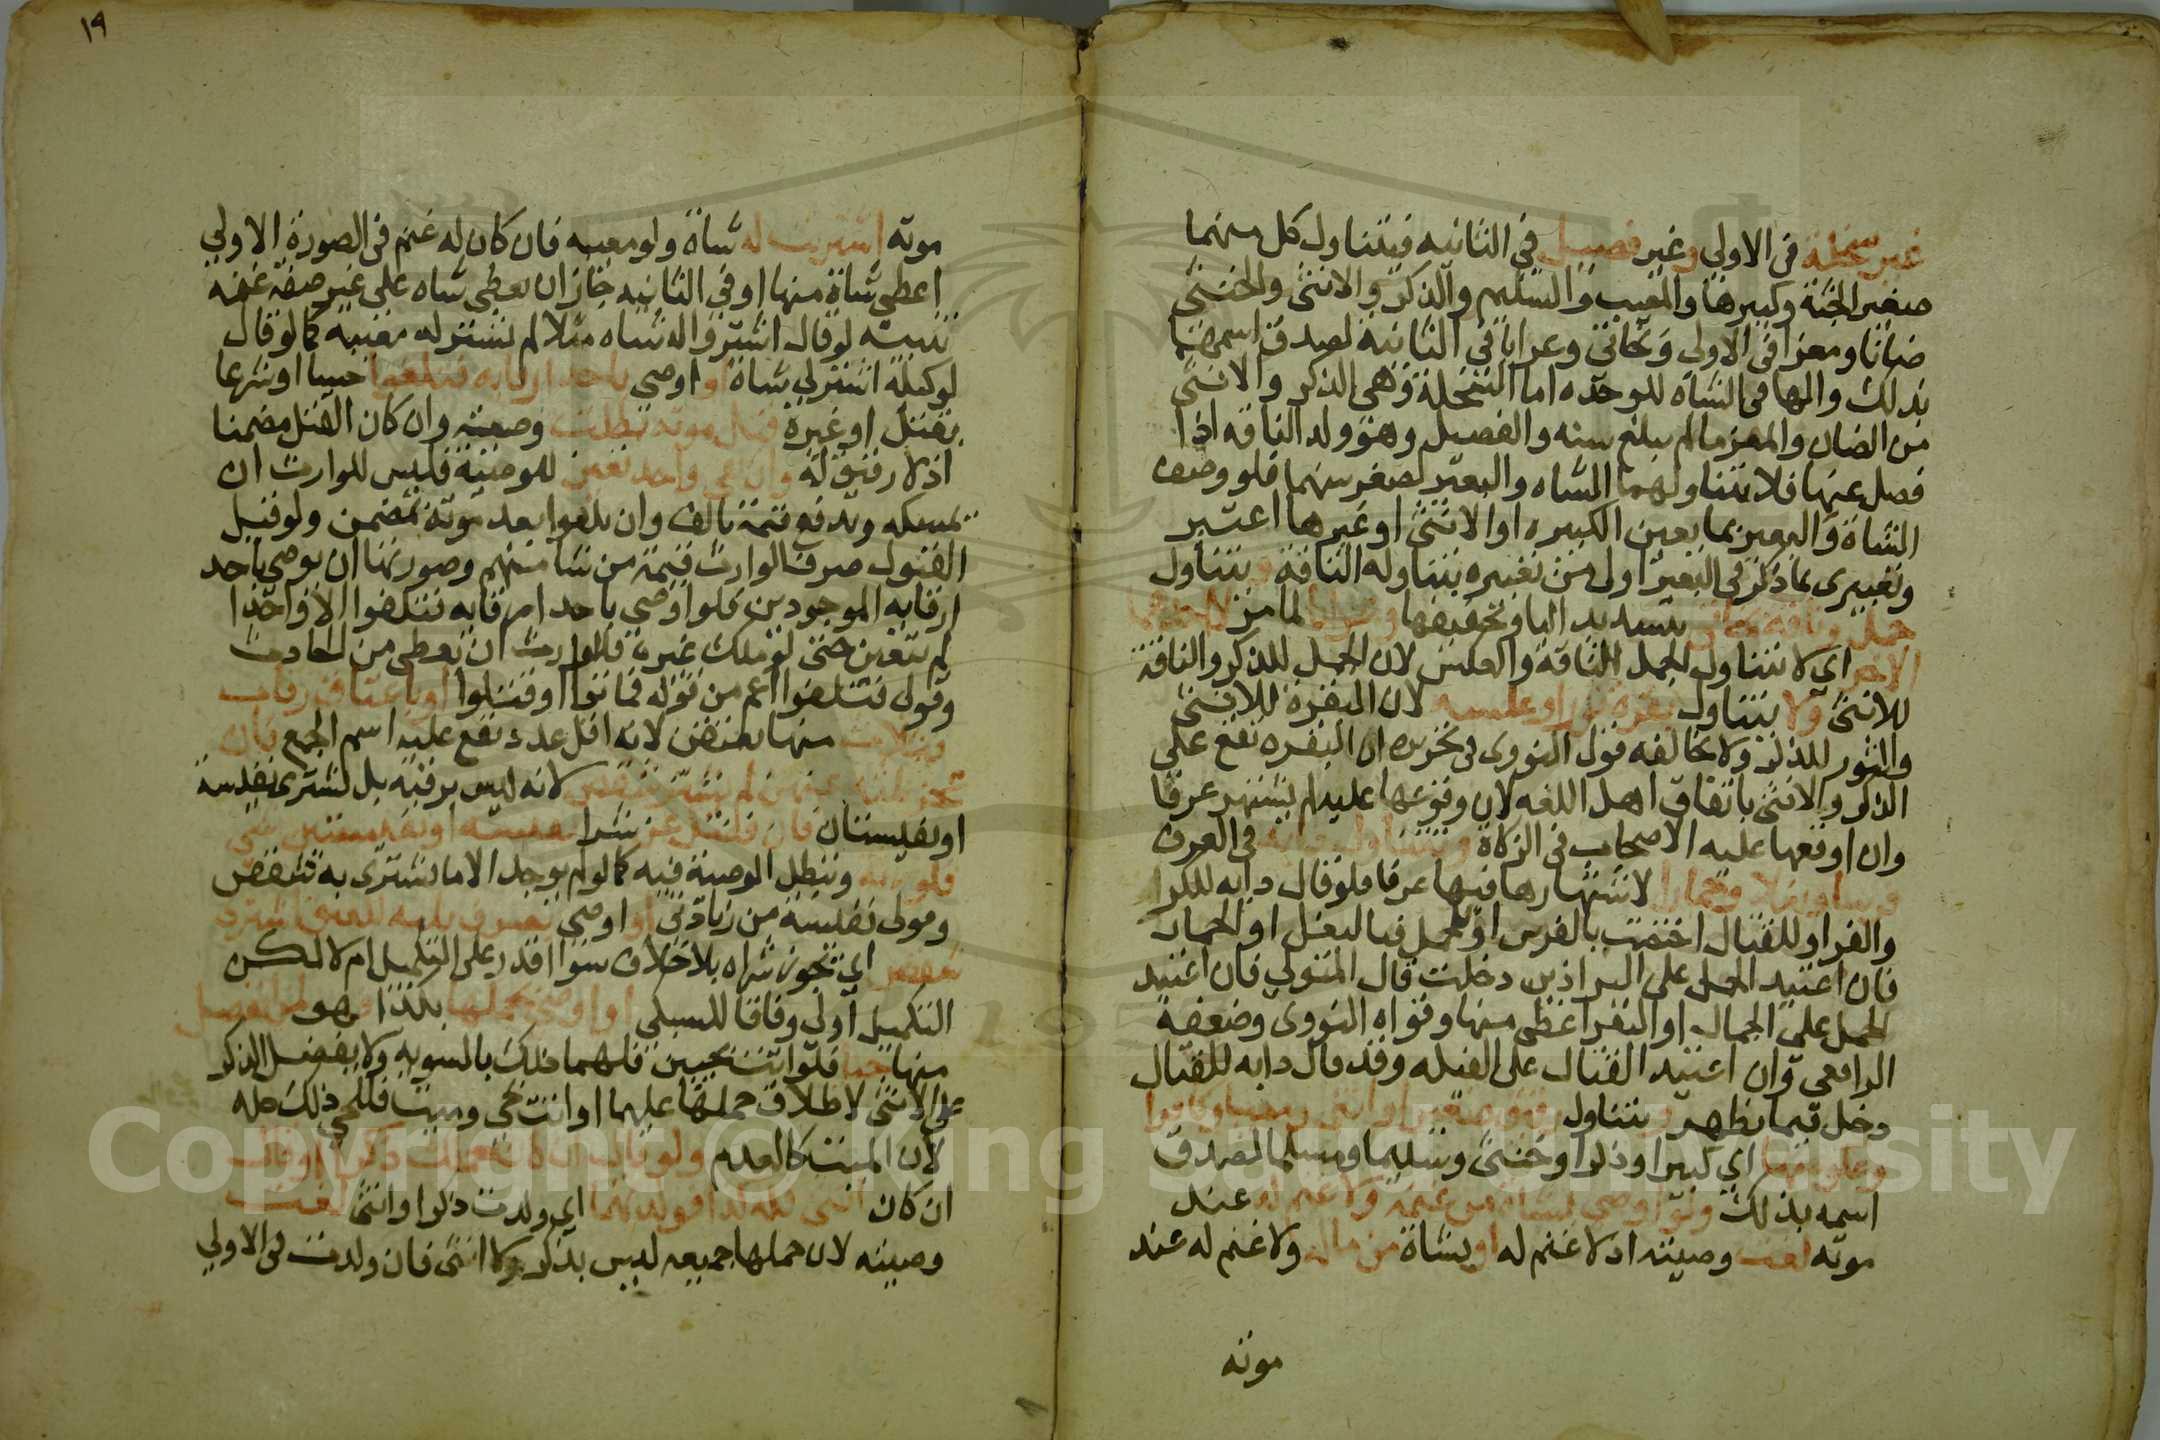 غير سخلة في الاولي وغير فصيل في الثانيه فيتناول كل منهما
صغير الجثة وكبيرها والمعيب والسليم والذكر والانثي والخنثي
ضانا ومعزا في الاولي وبخاتي وعرابا في الثانيه لصدق اسمهما
بذلك والها في الشاه للوحده اما السخلة وهي الذكر والانثي
من الضان والمعز ما لم يبلغ سنه والفصيل وهو ولد الناقه اذا
فصل عنها فلا يتناولهما الشاه والبعير لصغر سنهما فلو وصف
الشاة والبعير بما يعين الكبيره او الانثي او غيرها اعتبر
وتعبيري بما ذكر في البعير اولى من تعبيره بتناوله الناقة ويتناول
جمل وناقة بخاتي بتشديد اليا وتخفيفها وعرابا لما مر لا احدهما
الاخر اي لا يتناول الجمل الناقة والعكس لان الجمل للذكر والناقة
للانثي ولا يتناول بقرة ثورا وعكسه لان البقرة للانثي
والثور للذكر ولا يخالفه قول النووي في تحريره ان البقره تقع علي
الذكر والانثي باتفاق اهل اللغه لان وقوعها عليه لم يشتهر عرفا
وان اوقعها عليه الاصحاب في الزكاة ويتناول دابة في العرف
فرسا وبغلا وحمارا لاشتهارها فيها عرفا فلو قال دابه للكر
والفر او للقتال اختصت بالفرس او للحمل فبالبغل او الحمار
فان اعتيد الحمل علي البراذين دخلت قال المتولي فان اعتيد
الحمل علي الجمال او البقر اعطي منها وقواه النووي وضعفه
الرافعي وان اعتيد القتال علي الفيله وقد قال دابه للقتال
دخل فيما يظهر ويتناول رقيق صغيرا وانثي ومعيبا وكافرا
وعكوسها اي كبيرا وذكرا وخنثي وسليما ومسلما لصدق
اسمه بذلك ولو اوصي بشاة من غنمه ولا غنم له عند
موته لغت وصيته اذ لا غنم له او بشاة من ماله ولا غنم له عند
موته
١٩
موته اشتريت له شاة ولو معيبه فان كان له غنم في الصورة الاولي
اعطي شاة منها او في الثانيه جاز ان يعطي شاه علي غير صفة غنمه
تنبيه لو قال اشتروا له شاه مثلا لم يشتر له معيبه كما لو قال
لوكيله اشتر لي شاة او اوصي باحد ارقايه فتلفوا حسا او شرعا
بقتل او غيره قبل موته بطلت وصيته وان كان القتل مضمنا
اذ لا رقيق له وان بقي واحد تعين للوصية فليس للوارث ان
يمسكه ويدفع قيمة تالف وان تلفوا بعد موته بمضمن ولو قبل
القبول صرف الوارث قيمة من شا منهم وصورتها ان يوصي باحد
ارقايه الموجودين فلو اوصي باحد ارقايه فتلفوا الا واحدا
لم يتعين حتي لو ملك غيره فللوارث ان يعطي من الحادث
وقولي فتلفوا اعم من قوله فماتوا او قتلوا او باعتاق رقاب
فثلاث منها يعتقن لانه اقل عدد تقع عليه اسم الجمع فان
عجز ثلثه عنهن لم يشتر شقص لانه ليس برقبه بل تشتري نفيسة
او نفيستان فان فضل عن شرا نفيسه او نفيستين شي
فلورثته وتبطل الوصية فيه كما لو لم يوجد الا ما تشتري به شقص
وقولي نفيسة من زيادتي او اوصي بصرف ثلثه للعتق اشتري
شقص اي يجوز شراه بلا خلاف سوا اقدر علي التكميل ام لا لكن
التكميل اولى وفاقا للسبكي او اوصي لحملها بكذا فهو لمن انفصل
منها حيا فلو اتت بحيين فلهما ذلك بالسويه ولا يفضل الذكر
علي الانثي لاطلاق حملها عليهما او اتت بحي وميت فللحي ذلك كله
لان الميت كالعدم ولو قال ان كان حملك ذكرا او قال
ان كان انثي فله كذا فولدتهما اي ولدت ذكرا وانثي لغت
وصيته لان حملها جميعه ليس بذكر ولا انثي فان ولدت في الاولي